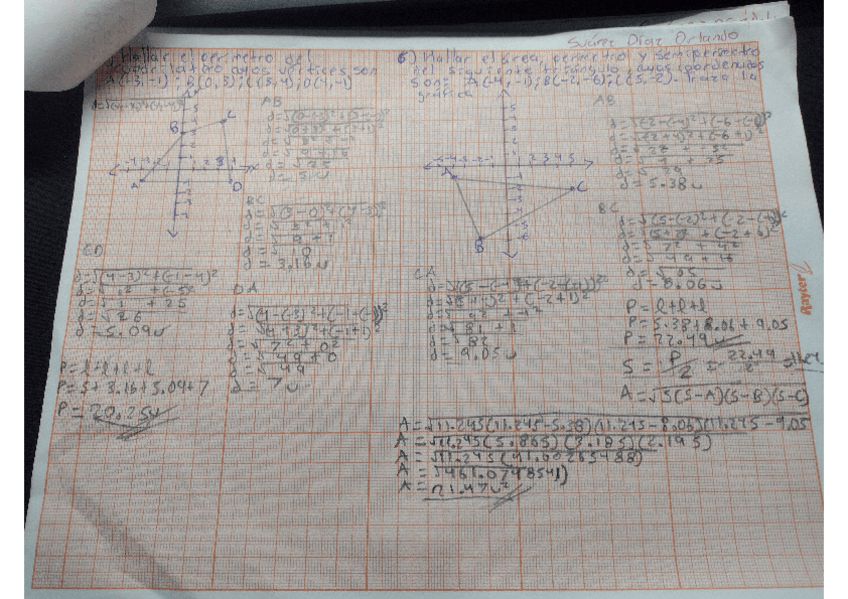 Suárez Díaz Orlando
) Hallar el perímetro del
cuadrilatero cuyos vertices son
A(-3,-1); B(0,3); C(3,4); D(4,-1)
AB
d=√(0+3)²+(3+1)²
d=√25
d=5u
BC
d=√(3-0)²+(4-3)²
d=√3²+1²
d=√9+1
d=√10
d=3.16u
CD
d=√(4-3)²+(-1-4)²
d=√1²+(-5)²
d=√1+25
d=√26
d=5.09u
DA
d=√(4-(-3))²+(-1-(-1))²
d=√(4+3)²+(-1+1)²
d=√7²+0²
d=√49+0
d=√49
d=7u
P=l+l+l+l
P=5+3.16+5.09+7
P=20.25u
6) Hallar el área, perímetro y semiperimetro
del siguiente triángulo, cuyas coordenadas
son: A(-4,-1); B(-2,-6); C(5,-2). Traza la
gráfica
AB
d=√(-2-(-4))²+(-6-(-1))²
d=√(-2+4)²+(-6+1)²
d=√2²+-5²
d=√4+25
d=√29
d=5.38u
BC
d=√(5-(-2))²+(-2-(-6))²
d=√(5+2)²+(-2+6)²
d=√7²+4²
d=√49+16
d=√65
d=8.06u
CA
d=√(5-(-4))²+(-2-(-1))²
d=√(5+4)²+(-2+1)²
d=√9²+-1²
d=√81+1
d=√82
d=9.05u
P=l+l+l
P=5.38+8.06+9.05
P=22.49u
S=P/2=22.49/2
A=√S(S-A)(S-B)(S-C)
A=√11.245(11.245-5.38)(11.245-8.06)(11.245-9.05
A=√11.245(5.865)(3.185)(2.195)
A=√11.245(41.00265488)
A=√461.0748541)
A=21.47u²
Rayter